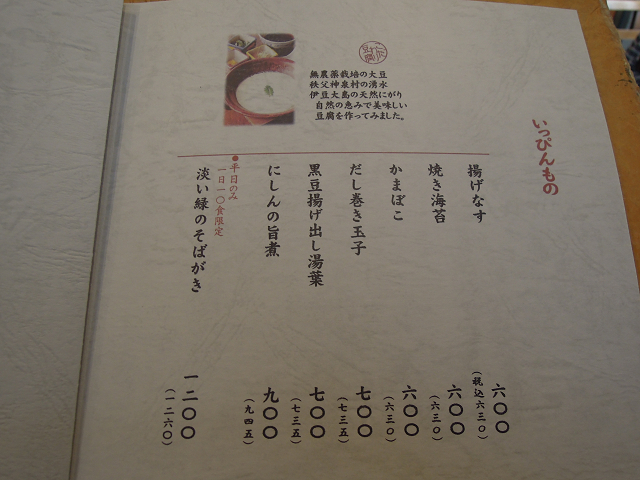 いっぴんもの
無農薬栽培の大豆
秩父神泉村の湧水
伊豆大島の天然にがり
自然の恵みで美味しい
豆腐を作ってみました。
揚げなす
六〇〇
(税込六三〇)
焼き海苔
六〇〇
(六三〇)
かまぼこ
六〇〇
(六三〇)
だし巻き玉子
七〇〇
(七三五)
黒豆揚げ出し湯葉
七〇〇
(七三五)
にしんの旨煮
九〇〇
(九四五)
●平日のみ
一日一〇食限定
淡い緑のそばがき
一二〇〇
(一二六〇)